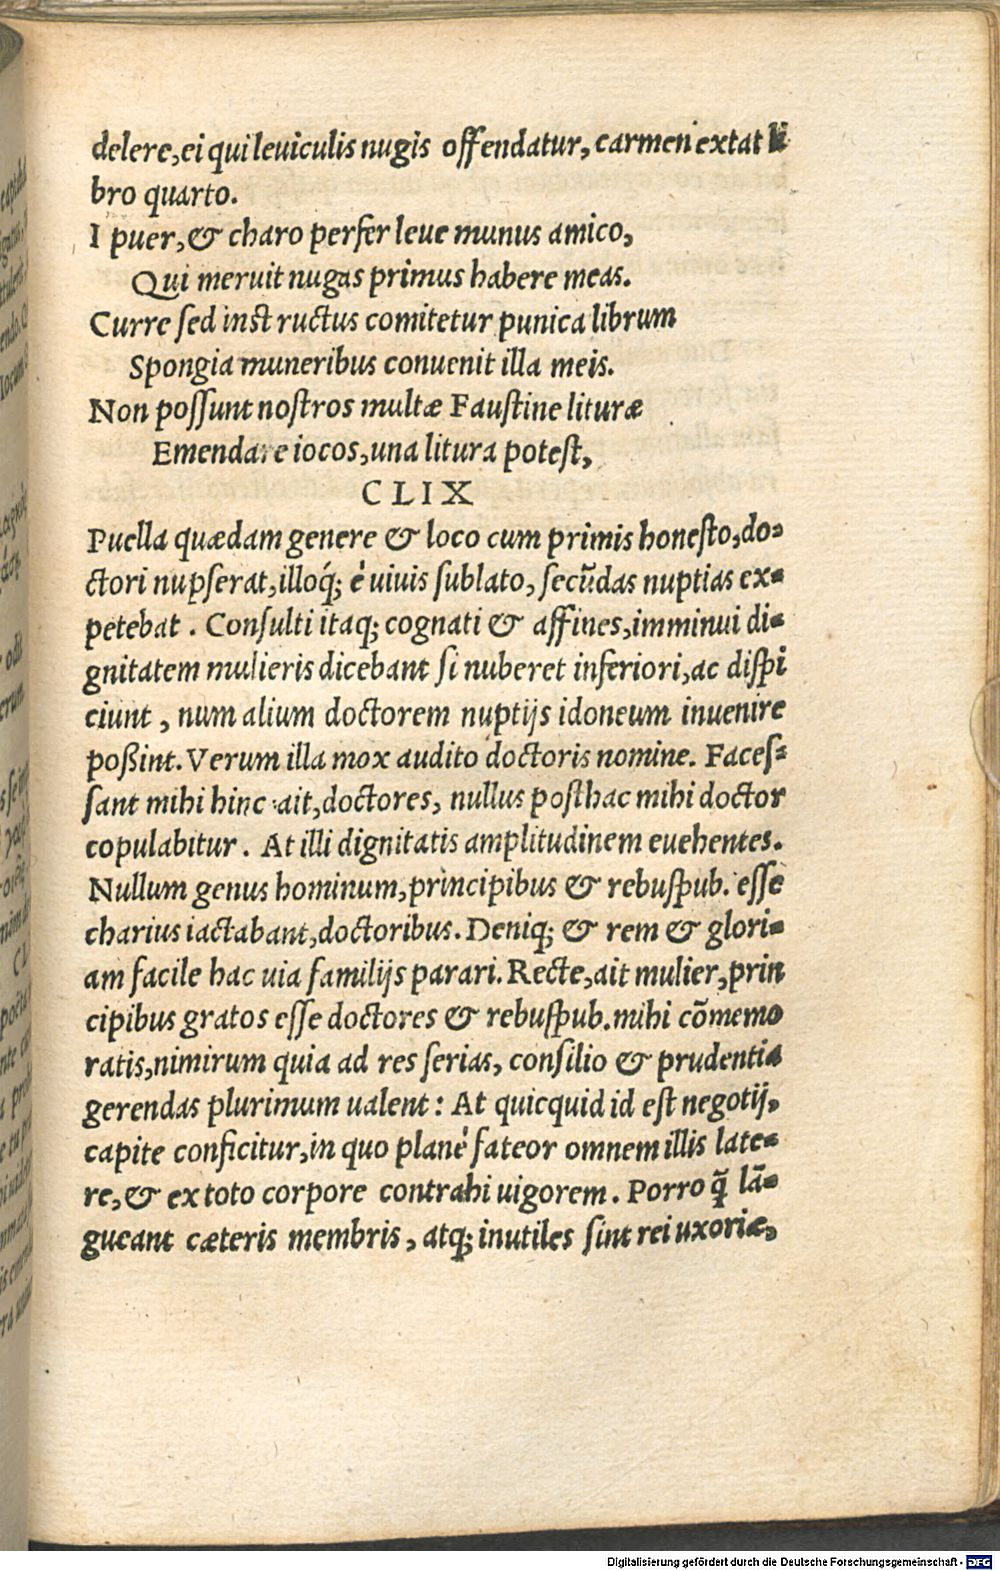 delere,ei qui leuiculis nugis offendatur, carmen extat li
bro quarto.
I puer,& charo perfer leue munus amico,
Qui meruit nugas primus habere meas.
Curre sed instructus comitetur punica librum
Spongia muneribus conuenit illa meis.
Non possunt nostros multæ Faustine lituræ
Emendare iocos,una litura potest,
CLIX
Puella quædam genere & loco cum primis honesto,do-
ctori nupserat,illoq́; è uiuis sublato, secūdas nuptias ex-
petebat. Consulti itaq; cognati & affines,imminui di-
gnitatem mulieris dicebant si nuberet inferiori,ac dispi
ciunt, num alium doctorem nuptijs idoneum inuenire
poßint. Verum illa mox audito doctoris nomine. Faces-
sant mihi hinc ait,doctores, nullus posthac mihi doctor
copulabitur. At illi dignitatis amplitudinem euehentes.
Nullum genus hominum,principibus & rebuspub. esse
charius iactabant,doctoribus. Deniq; & rem & glori-
am facile hac uia familijs parari. Recte,ait mulier,prin
cipibus gratos esse doctores & rebuspub.mihi cōmemo
ratis,nimirum quia ad res serias, consilio & prudentia
gerendas plurimum ualent: At quicquid id est negotij,
capite conficitur,in quo planè fateor omnem illis late-
re,& ex toto corpore contrahi uigorem. Porro q̃ lā-
gueant cæteris membris, atq; inutiles sint rei uxoriæ,
Digitalisierung gefördert durch die Deutsche Forschungsgemeinschaft - DFG